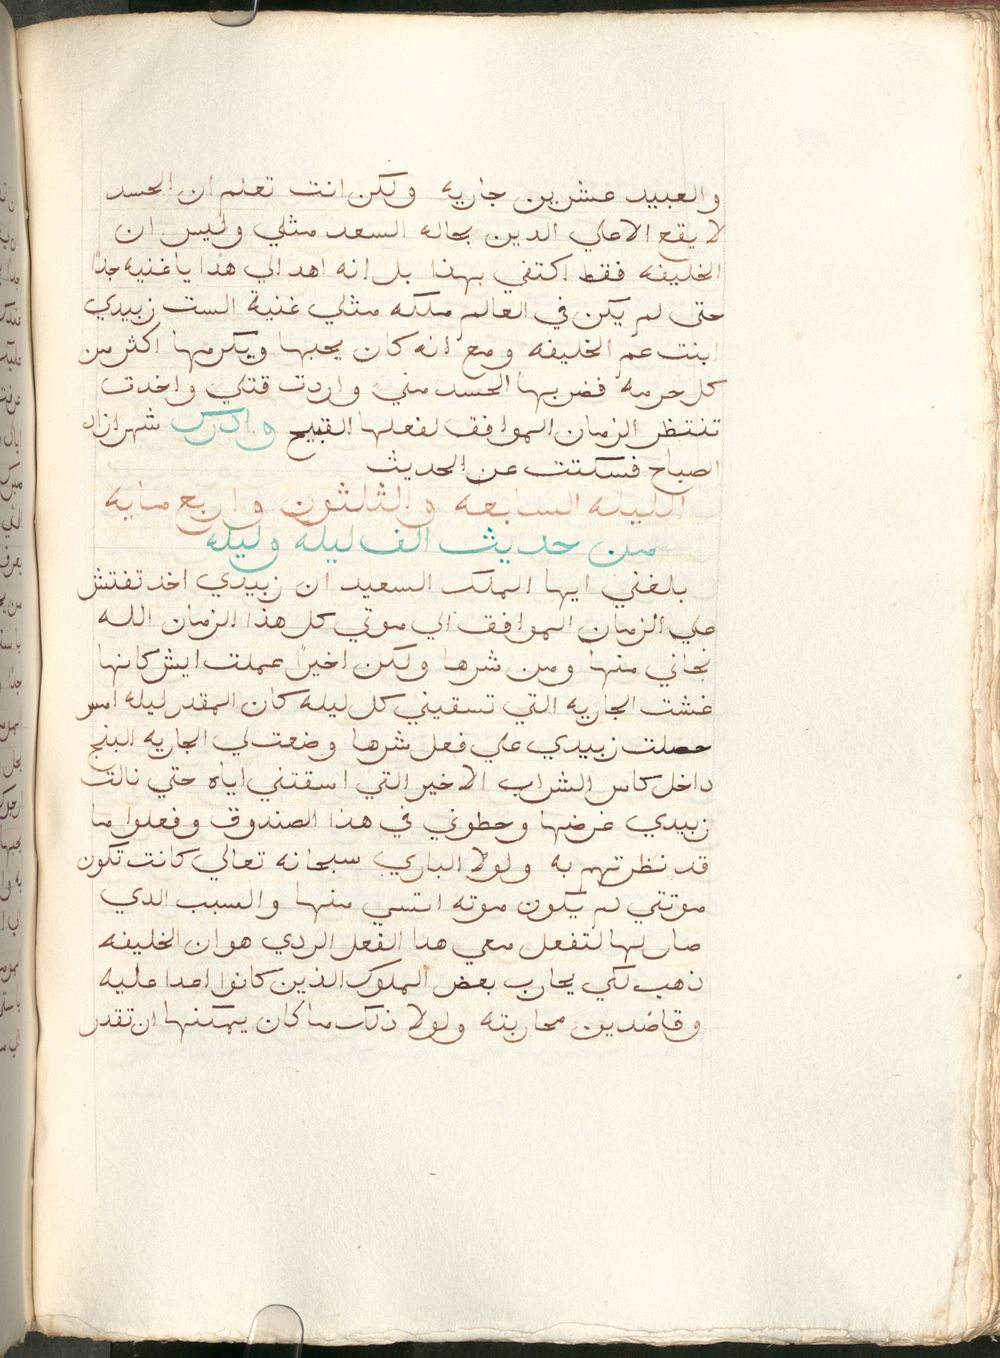 والعبيد عشرين جاريه ولكن انت تعلم ان الحسد
لا يقع الا علي الدين بحاله السعد مثلي وليس ان
الخليفه فقط اكتفي بهذا بل انه اهدالي هدايا غنيه جدًا
حتى لم يكن في العالم ملكه مثلي غنية الست زبيدي
ابنت عم الخليفه ومع انه كان يحبها ويكرمها اكثر من
كل حرمه فضربها الحسد مني واردت قتلي واخدت
تنتظر الزمان الموافق لفعلها القبيح وادرك شهرازاد
الصباح فسكتت عن الحديث
الليله السابعه والثلثون واربع مايه
من حديث الف ليله وليله
بلغني ايها الملك السعيد ان زبيدي اخد تفتش
علي الزمان الموافق الي موتي كل هذا الزمان الله
نجاني منها ومن شرها ولكن اخيرًا عملت ايش كانها
غشت الجاريه التي تسقيني كل ليله كان المقدر ليله امس
حصلت زبيدي علي فعل شرها وضعت لي الجاريه البنج
داخل كاس الشراب الاخير التي اسقتني اياه حتي نالت
زبيدي غرضها وحطوني في هذا الصندوق وفعلوا ما
قد نظرتهم به ولولا الباري سبحانه تعالي كانت تكون
موتتي لم يكون موته اتسي منها والسبب الدي
صار لها لتفعل معي هدا الفعل الردي هو ان الخليفه
ذهب لكي يحارب بعض الملوك الذين كانوا اعدا عليه
وقاصدين محاربته ولولا ذلك ما كان يمكنها ان تقدر